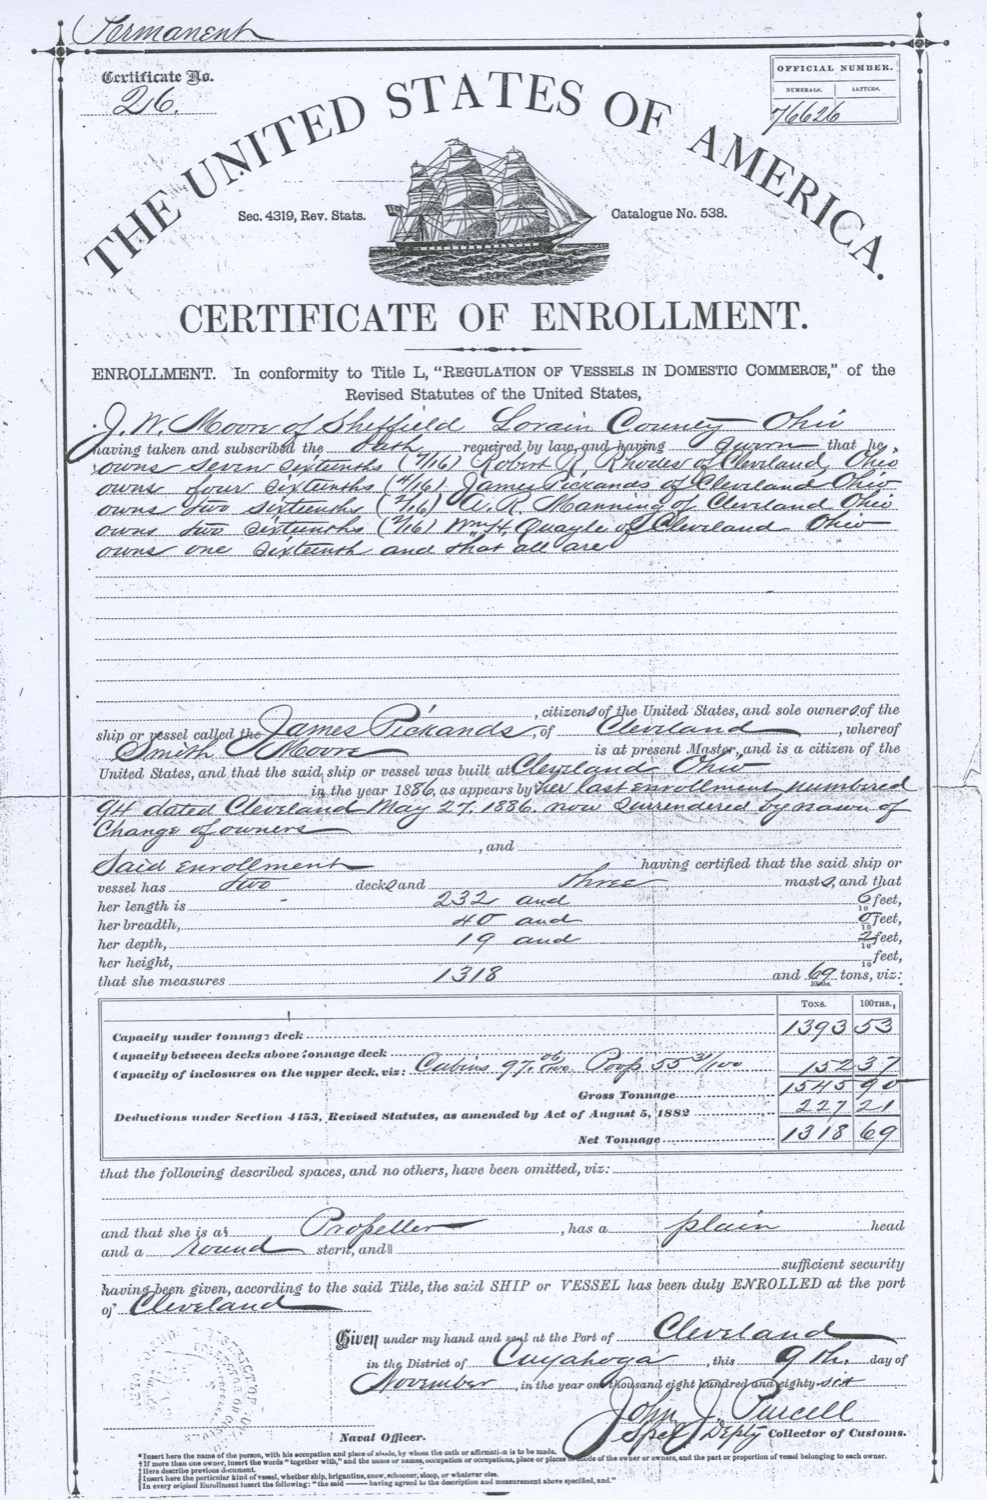 Permanent
Certificate No.
26.
OFFICIAL NUMBER.
NUMERALS. LETTERS.
76626
THE UNITED STATES OF AMERICA.
Sec. 4319, Rev. Stats.
Catalogue No. 538.
CERTIFICATE OF ENROLLMENT.
ENROLLMENT. In conformity to Title L, "REGULATION OF VESSELS IN DOMESTIC COMMERCE," of the
Revised Statutes of the United States,
J. W. Moore of Sheffield Lorain County Ohio
having taken and subscribed the Oath required by law, and having sworn that he
owns seven sixteenths (7/16) Robert R. Rhodes of Cleveland, Ohio
owns four sixteenths (4/16) James Pickands of Cleveland Ohio
owns two sixteenths (2/16) A. R. Manning of Cleveland Ohio
owns two sixteenths (2/16) Wm. H. Quayle of Cleveland Ohio
owns one sixteenth and that all are
, citizens of the United States, and sole owners of the
ship or vessel called the James Pickands, of Cleveland, whereof
Smith Moore is at present Master, and is a citizen of the
United States, and that the said ship or vessel was built at Cleveland Ohio
in the year 1886, as appears by her last enrollment numbered
94 dated Cleveland May 27. 1886. now surrendered by reason of
Change of owners
, and
Said enrollment having certified that the said ship or
vessel has two decks and three masts, and that
her length is 232 and 0/10 feet,
her breadth, 40 and 0/10 feet,
her depth, 19 and 2/10 feet,
her height, /10 feet,
that she measures 1318 and 69/100ths. tons, viz:
TONS. 100THS.
Capacity under tonnage deck 1393 53
Capacity between decks above tonnage deck
Capacity of inclosures on the upper deck, viz: Cabins 97.06/100. Poop 55 31/100 152 37
Gross Tonnage 1545 90
Deductions under Section 4153, Revised Statutes, as amended by Act of August 5, 1882 227 21
Net Tonnage 1318 69
that the following described spaces, and no others, have been omitted, viz:
and that she is a§ Propeller, has a plain head
and a round stern, and‖
sufficient security
having been given, according to the said Title, the said SHIP or VESSEL has been duly ENROLLED at the port
of Cleveland
Given under my hand and seal at the Port of Cleveland
in the District of Cuyahoga, this 9th. day of
November, in the year one thousand eight hundred and eighty-six
John J. Purcell
Naval Officer.
Spcl Depty Collector of Customs.
*Insert here the name of the person, with his occupation and place of abode, by whom the oath or affirmation is to be made.
†If more than one owner, insert the words "together with," and the name or names, occupation or occupations, place or places of abode of the owner or owners, and the part or proportion of vessel belonging to each owner.
‡Here describe previous document.
§Insert here the particular kind of vessel, whether ship, brigantine, snow, schooner, sloop, or whatever else.
‖In every original Enrollment insert the following: "the said —— having agreed to the description and measurement above specified, and."